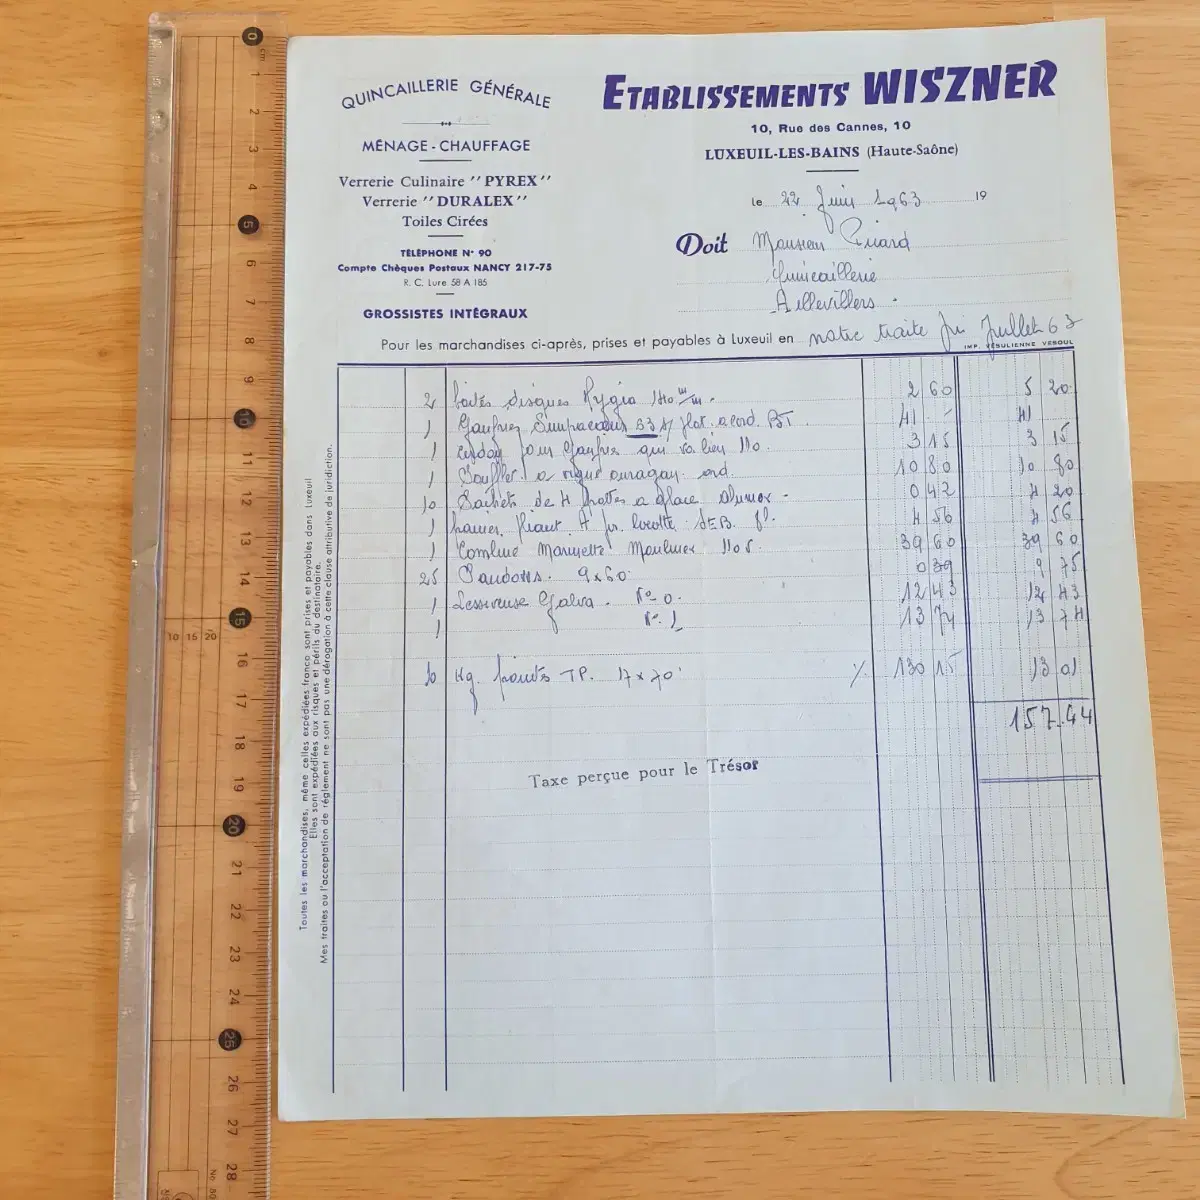 QUINCAILLERIE GÉNÉRALE
MÉNAGE - CHAUFFAGE
Verrerie Culinaire "PYREX"
Verrerie "DURALEX"
Toiles Cirées
TÉLÉPHONE N° 90
Compte Chèques Postaux NANCY 217-75
R. C. Lure 58 A 185
GROSSISTES INTÉGRAUX
ETABLISSEMENTS WISZNER
10, Rue des Cannes, 10
LUXEUIL-LES-BAINS (Haute-Saône)
le 22 Juin 1963 19
Doit Monsieur
Quincaillerie
Aillevillers.
Pour les marchandises ci-après, prises et payables à Luxeuil en notre traite fin Juillet 63
IMP. VÉSULIENNE VESOUL
2 boites disques 2 60 5 20
1 Gaufrier BT 41 - 41
1 pour Gaufres 3 15 3 15
1 Soufflet a ouragan ord. 10 80 10 80
10 Sachets de 4 a glace 0 42 4 20
1 Panier SEB. 4 56 4 56
1 Combiné Moulinex 39 60 39 60
25 9x60 0 39 9 75
1 Lessiveuse Galva. N° 0. 12 43 12 43
1 N° 1 13 74 13 74
10 Kg. pointes TP. 17 x 70 % 130 15 13 01
157.44
Taxe perçue pour le Trésor
Toutes les marchandises, même celles expédiées franco sont prises et payables dans Luxeuil
Elles sont expédiées aux risques et périls du destinataire.
Mes traites ou l'acceptation de règlement ne sont pas une dérogation à cette clause attributive de juridiction.
0 cm 1 2 3 4 5 6 7 8 9 10 11 12 13 14 15 16 17 18 19 20 21 22 23 24 25 26 27 28
10 15 20